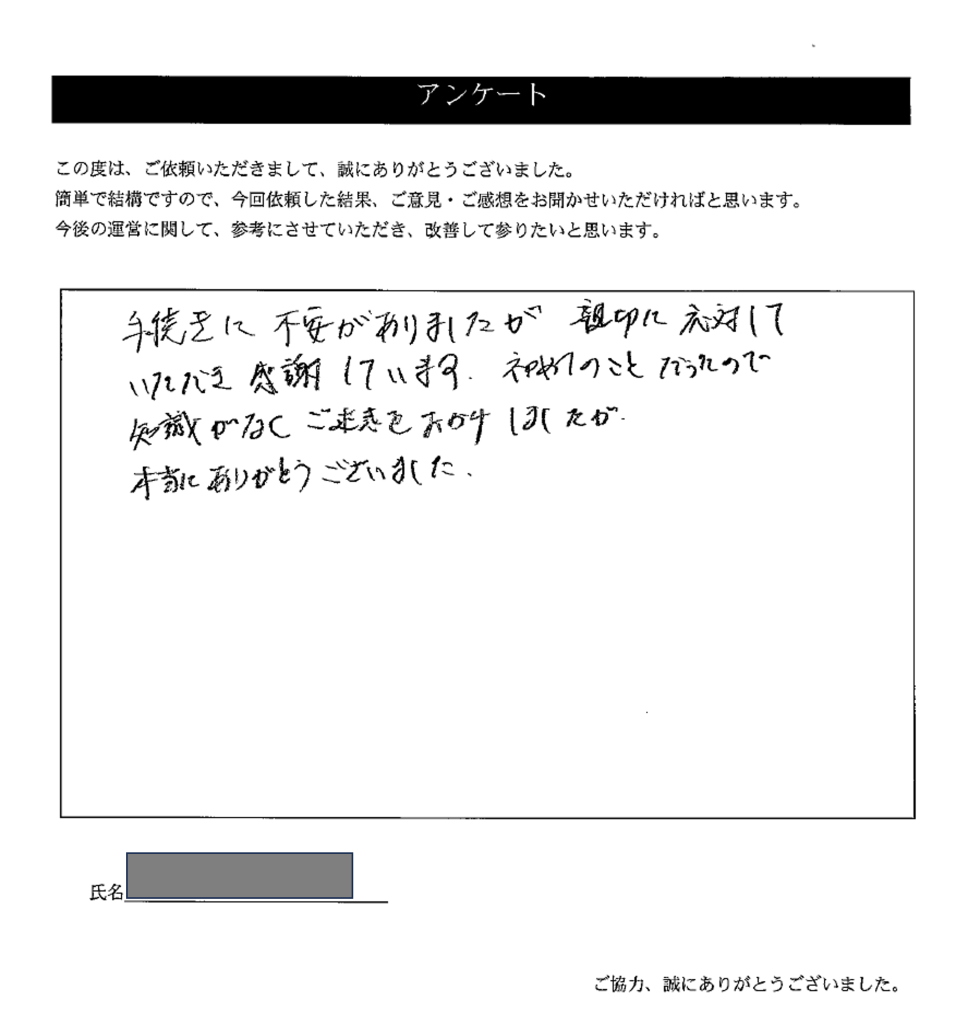 アンケート
この度は、ご依頼いただきまして、誠にありがとうございました。
簡単で結構ですので、今回依頼した結果、ご意見・ご感想をお聞かせいただければと思います。
今後の運営に関して、参考にさせていただき、改善して参りたいと思います。
手続きに 不安がありましたが 親切に 応対して
いただき 感謝しています. 初めてのことだったので
知識がなく ご迷惑をおかけしましたが.
本当にありがとうございました.
氏名
ご協力、誠にありがとうございました。